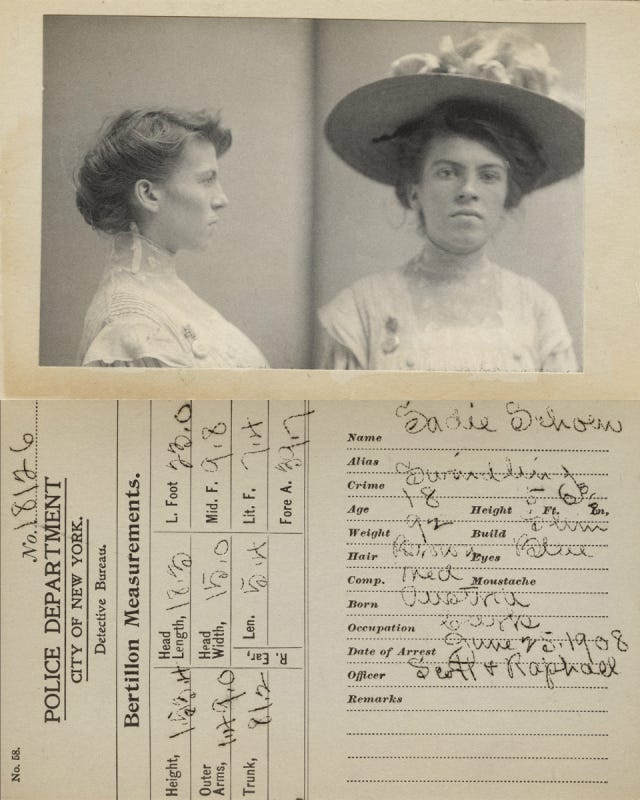 No. 18126
POLICE DEPARTMENT
CITY OF NEW YORK.
Detective Bureau.
Bertillon Measurements.
Height, Head Length, 18.3 L. Foot 23.0
Outer Arms, Head Width, 15.0 Mid. F. 9.8
Trunk, 81.2 R. Ear, Len. Lit. F. 7.4
Fore A. 39.7
No. 58.
Name Sadie Schoen
Alias
Crime Swindling
Age 18 Height 5 Ft. In.
Weight 92 Build Slim
Hair Brown Eyes Blue
Comp. Med Moustache
Born Austria
Occupation
Date of Arrest June 25, 1908
Officer Scott & Raphael
Remarks